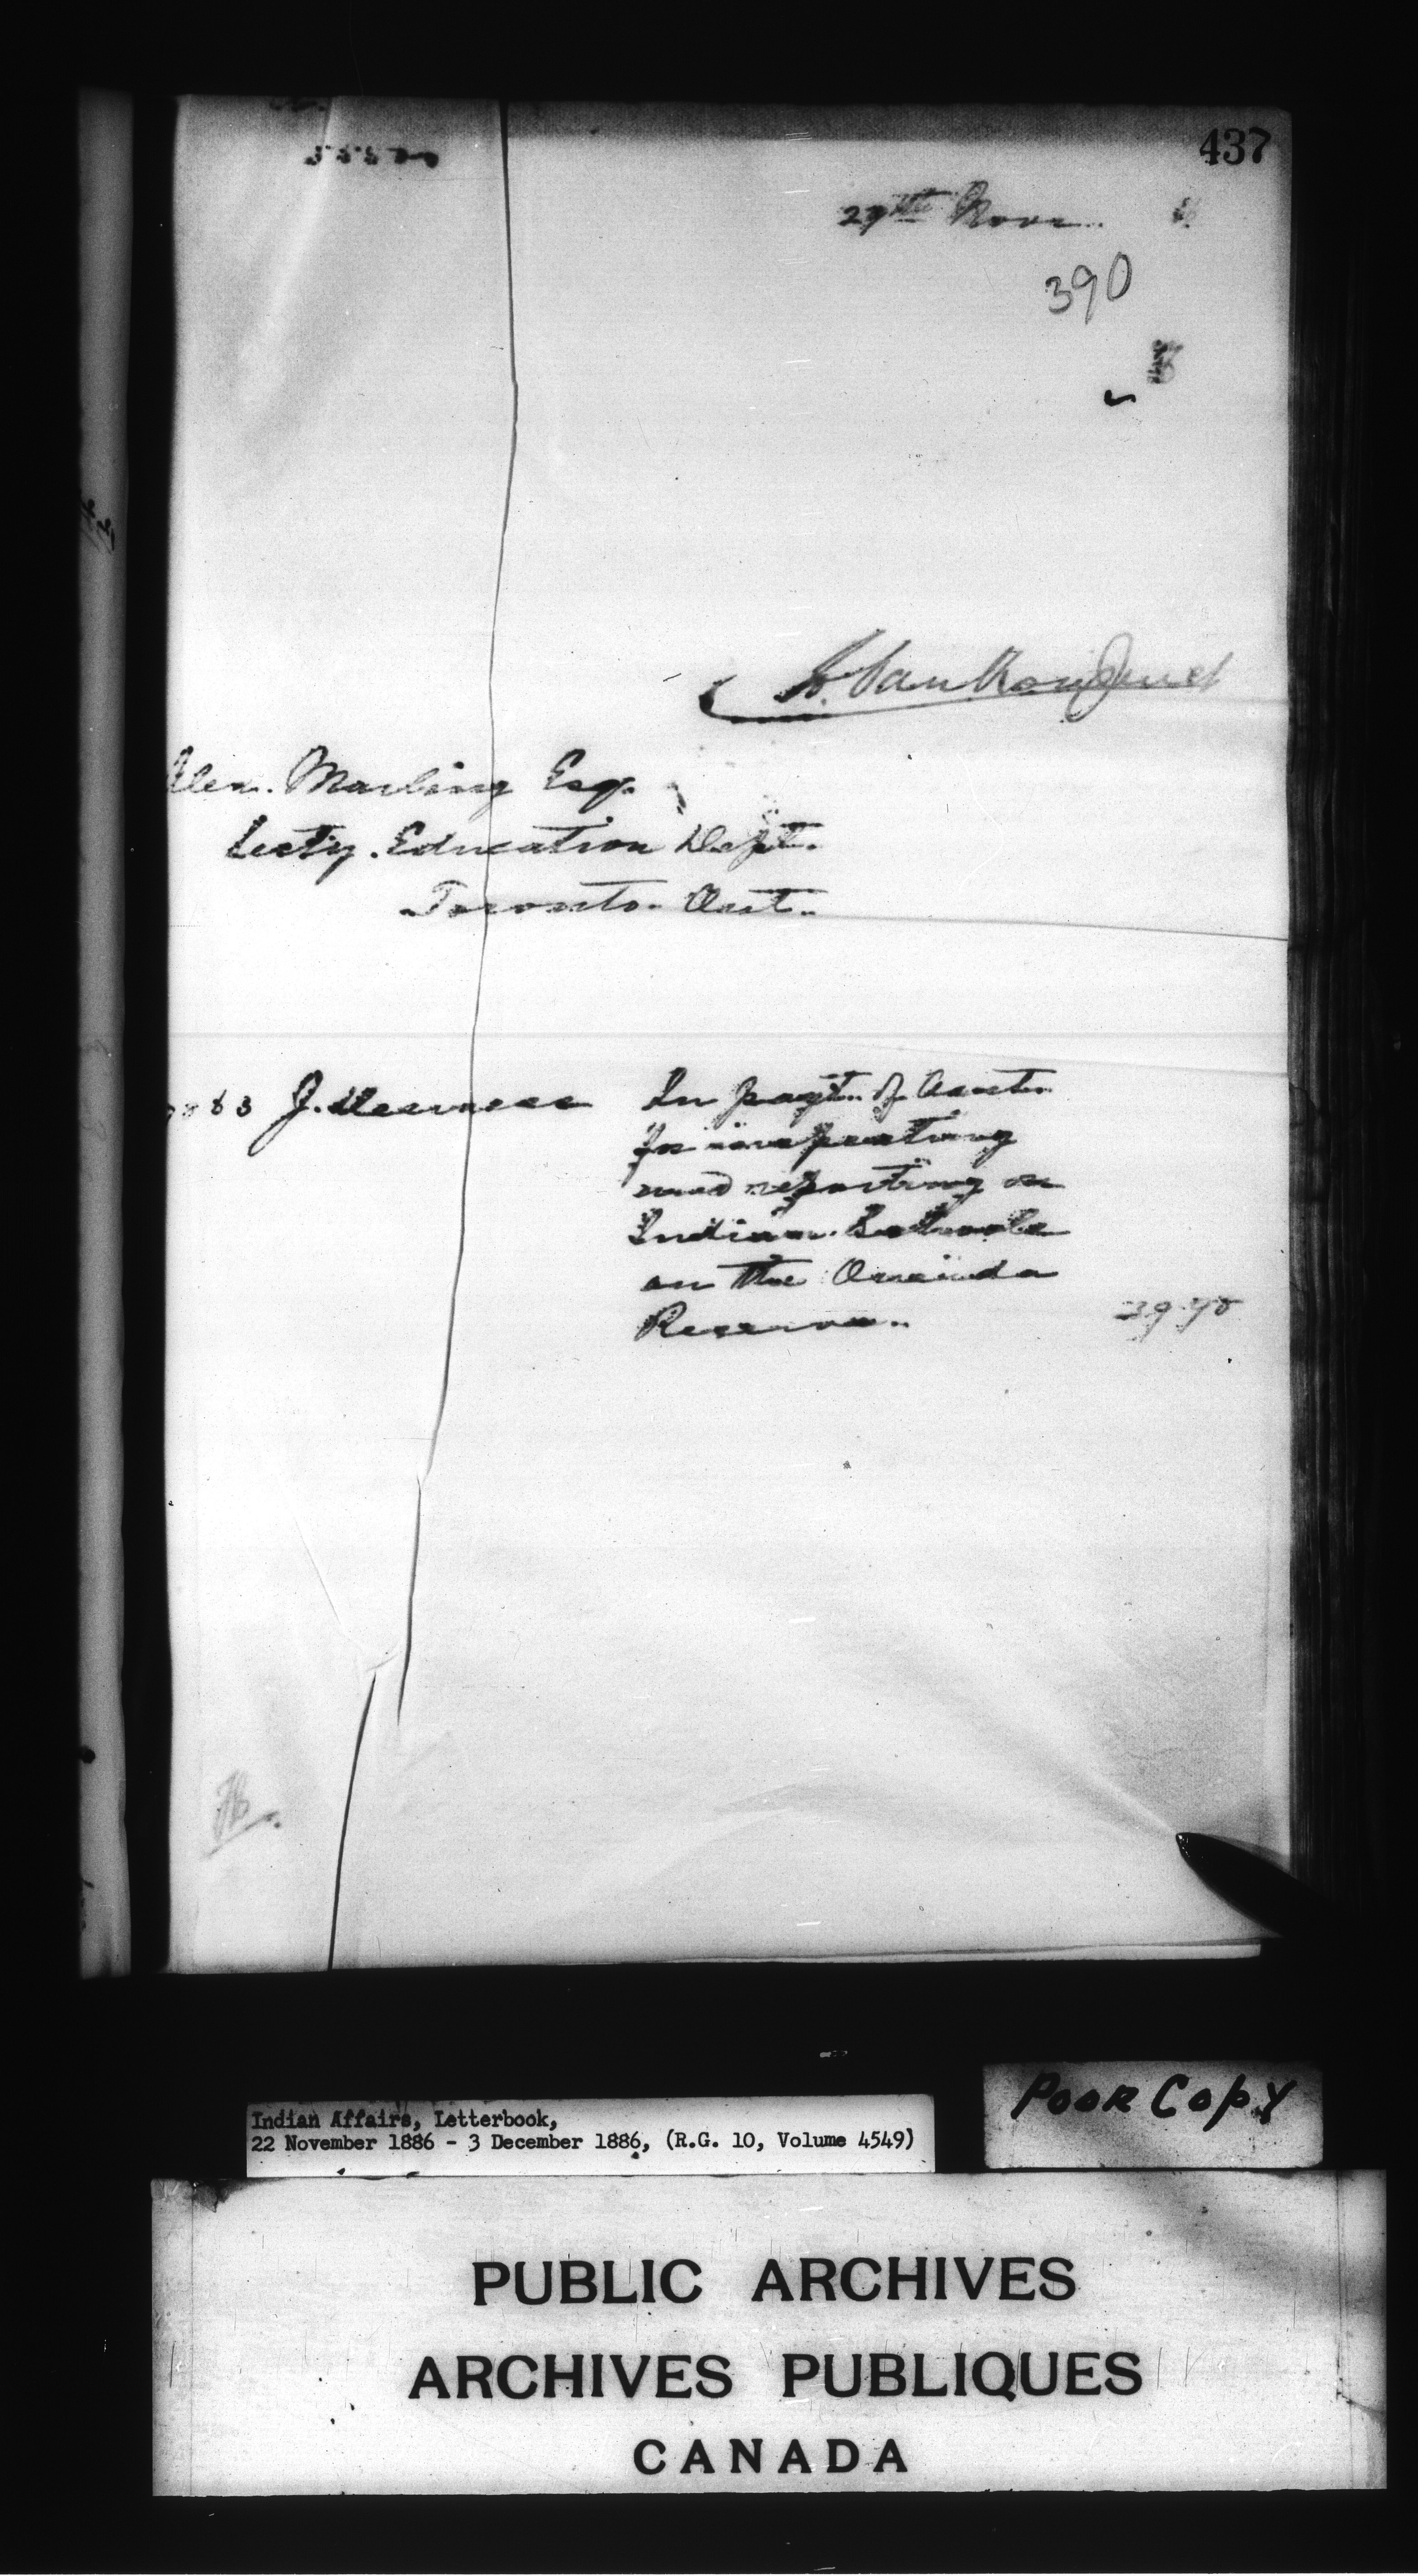 437
29th Novr. 6.
390
L. Vankoughnet
Alex. Marling Esq.
Secty. Education Dept.
Toronto. Ont.
83 J. Dearness In payt. of Acct.
for inspecting
and reporting on
Indian Schools
on the Oneida
Reserve. 39.70
Indian Affairs, Letterbook,
22 November 1886 - 3 December 1886, (R.G. 10, Volume 4549)
POOR COPY
PUBLIC ARCHIVES
ARCHIVES PUBLIQUES
CANADA